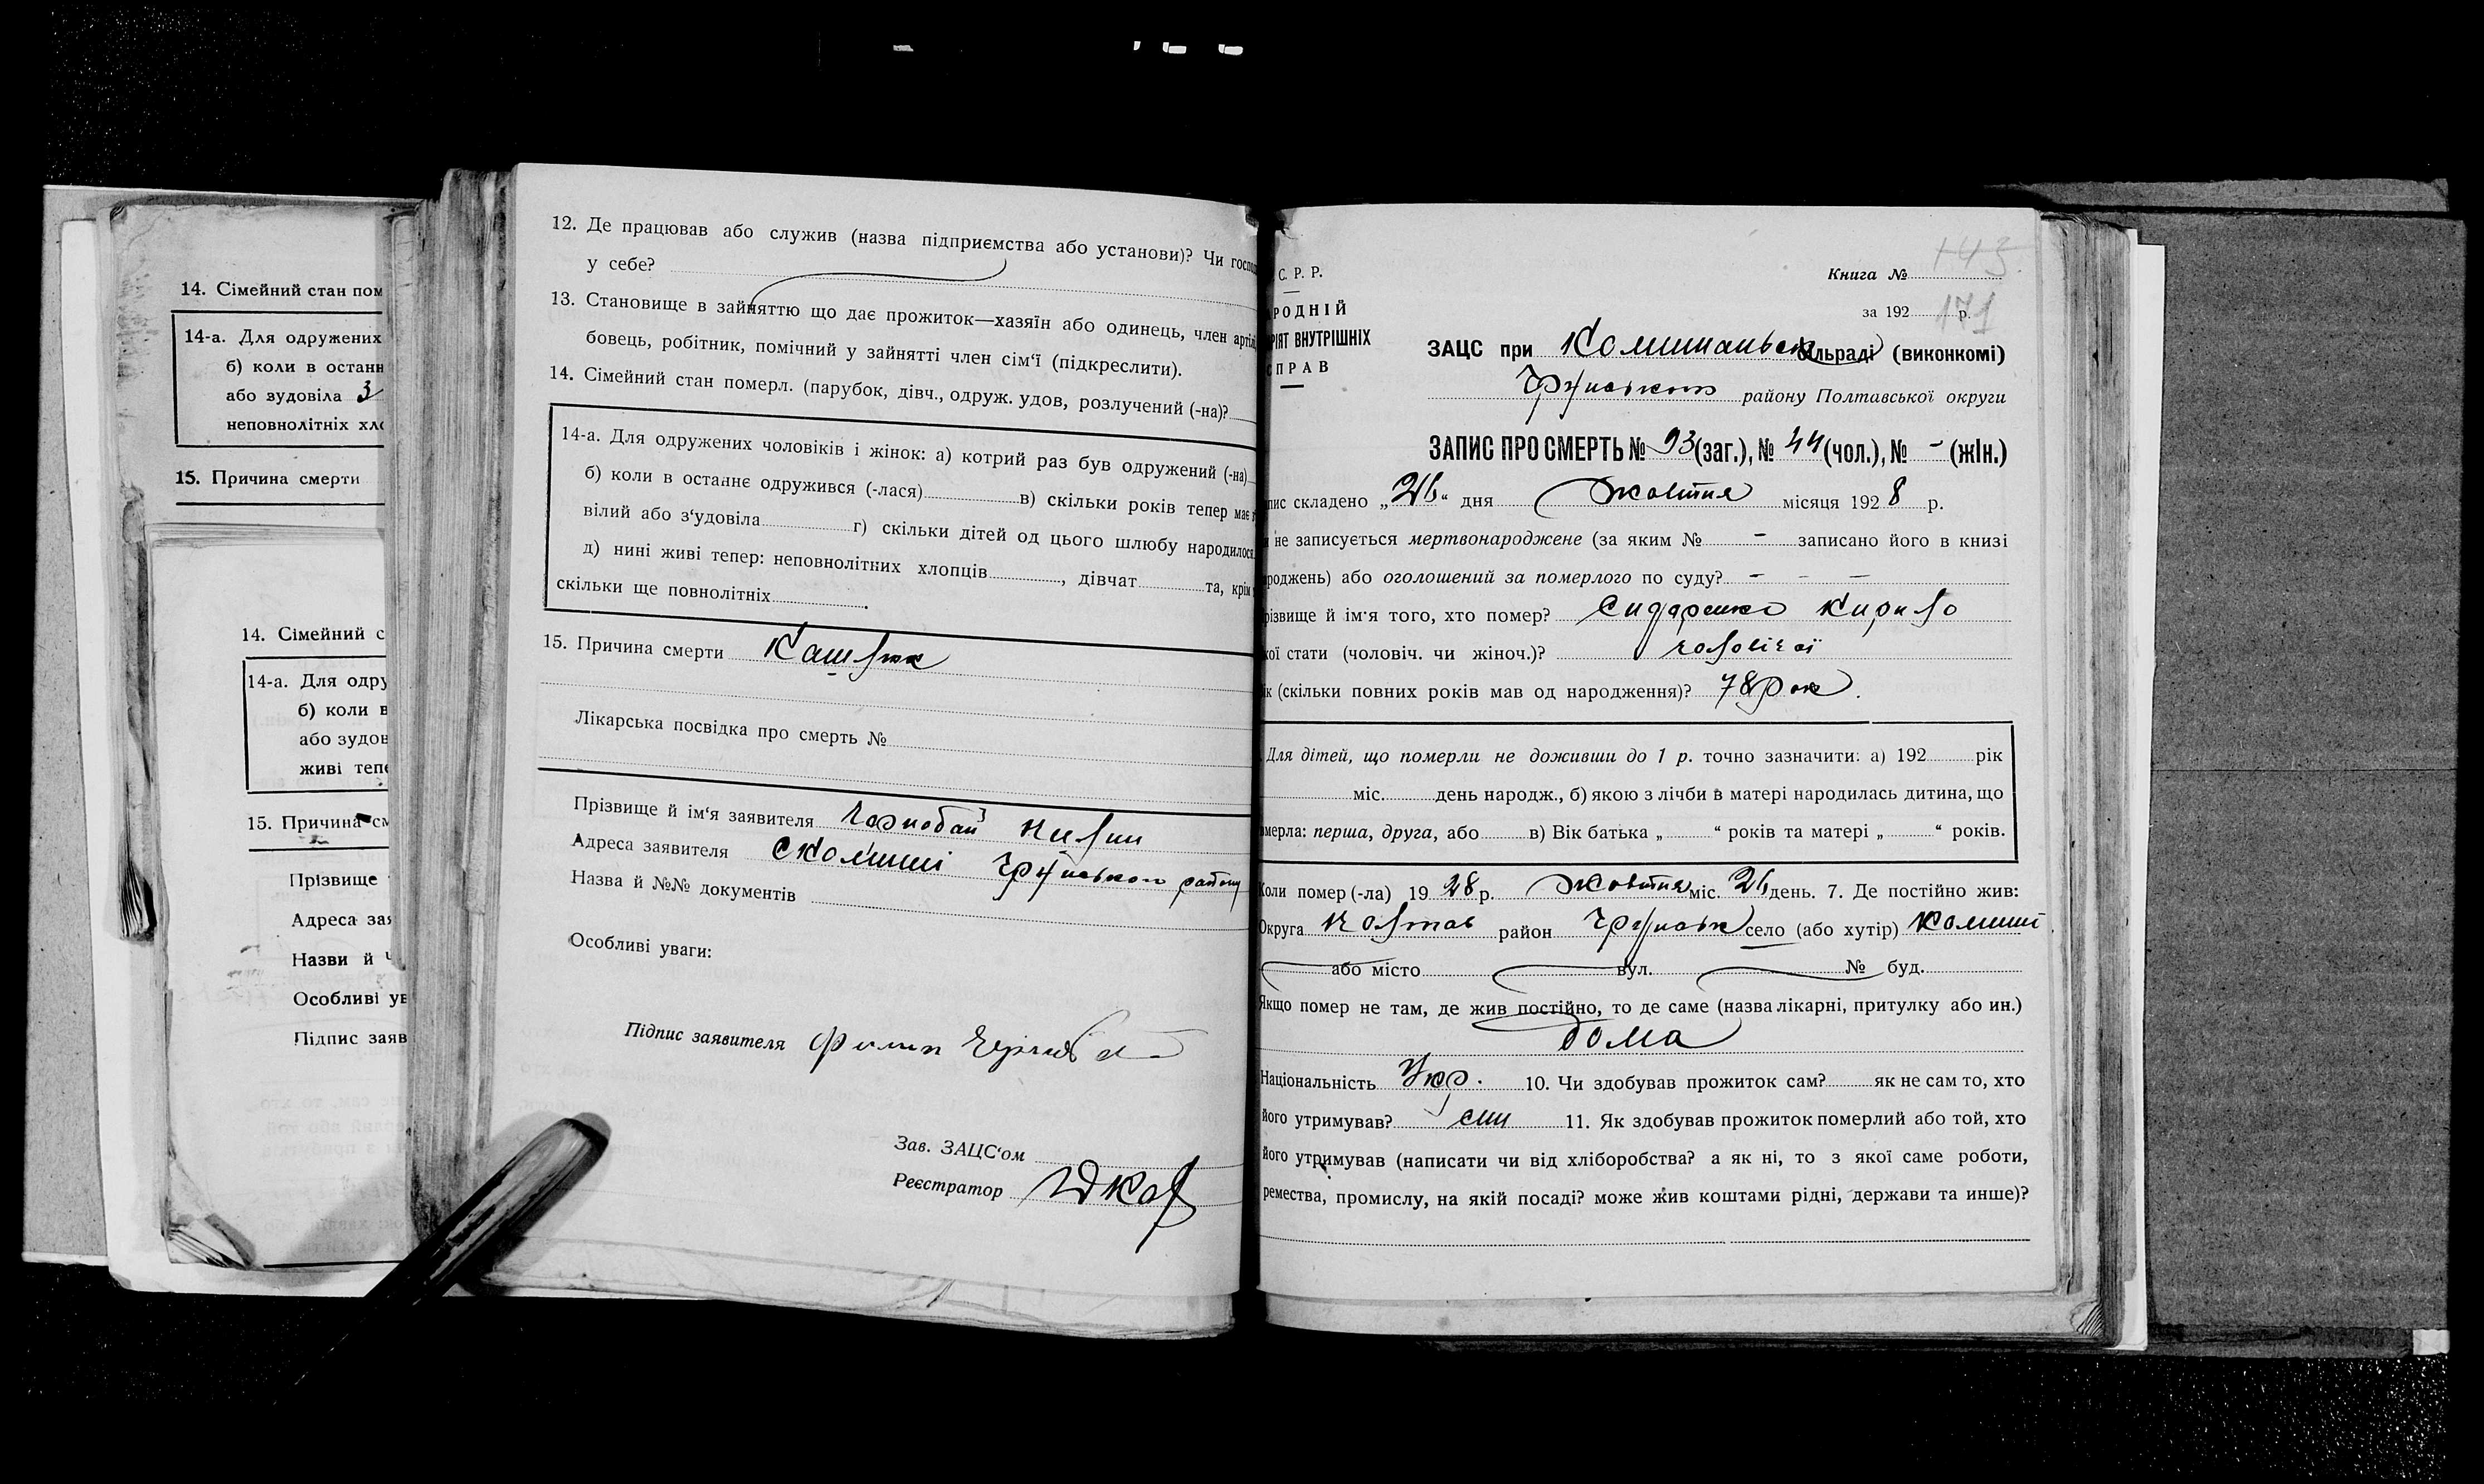 14. Сімейний стан пом
14-а. Для одружених
б) коли в останн
або зудовіла З
неповнолітніх хл
15. Причина смерти
14. Сімейний с
14-а. Для одру
б) коли в
або зудов
живі тепе
15. Причина см
Прізвище
Адреса зая
Назви й
Особливі ув
Підпис заяв
12. Де працював або служив (назва підприємства або установи)? Чи господ
у себе?
13. Становище в зайняттю що дає прожиток—хазяїн або одинець, член артіл
бовець, робітник, помічний у зайнятті член сім'ї (підкреслити).
14. Сімейний стан померл. (парубок, дівч., одруж. удов, розлучений (-на)?
14-а. Для одружених чоловіків і жінок: а) котрий раз був одружений (-на)
б) коли в останнє одружився (-лася) в) скільки років тепер має
вілий або з'удовіла г) скільки дітей од цього шлюбу народилося
д) нині живі тепер: неповнолітних хлопців, дівчат та, крім
скільки ще повнолітніх.
15. Причина смерти Кашлюк
Лікарська посвідка про смерть №
Прізвище й ім'я заявителя Чорнобай Пилип
Адреса заявителя с Комиші Грунського району
Назва й №№ документів
Особливі уваги:
Підпис заявителя Филип Чорнобай
Зав. ЗАЦС'ом
Реєстратор
143.
Книга №
С. Р. Р.
за 192 р.
171
РОДНІЙ
РІЯТ ВНУТРІШНІХ
СПРАВ
ЗАЦС при Комишанськ сільраді (виконкомі)
Грунського району Полтавської округи
ЗАПИС ПРО СМЕРТЬ № 93 (заг.), № 44 (чол.), № - (жін.)
пис складено „26“ дня жовтня місяця 1928 р.
и не записується мертвонароджене (за яким № - записано його в книзі
роджень) або оголошений за померлого по суду? - - -
різвище й ім'я того, хто помер? Сидоренко Кирило
кої стати (чоловіч. чи жіноч.)? чоловічої
ік (скільки повних років мав од народження)? 78 рок.
Для дітей, що померли не доживши до 1 р. точно зазначити: а) 192 рік
міс. день народж., б) якою з лічби в матері народилась дитина, що
омерла: перша, друга, або в) Вік батька „ “ років та матері „ “ років.
Коли помер (-ла) 1928 р. Жовтня міс. 26 день. 7. Де постійно жив:
Округа Полтав район Грунськ село (або хутір) Комиші
або місто вул. № буд.
Якщо помер не там, де жив постійно, то де саме (назва лікарні, притулку або ин.)
дома
Національність Укр. 10. Чи здобував прожиток сам? як не сам то, хто
його утримував? син 11. Як здобував прожиток померлий або той, хто
його утримував (написати чи від хліборобства? а як ні, то з якої саме роботи,
ремества, промислу, на якій посаді? може жив коштами рідні, держави та инше)?